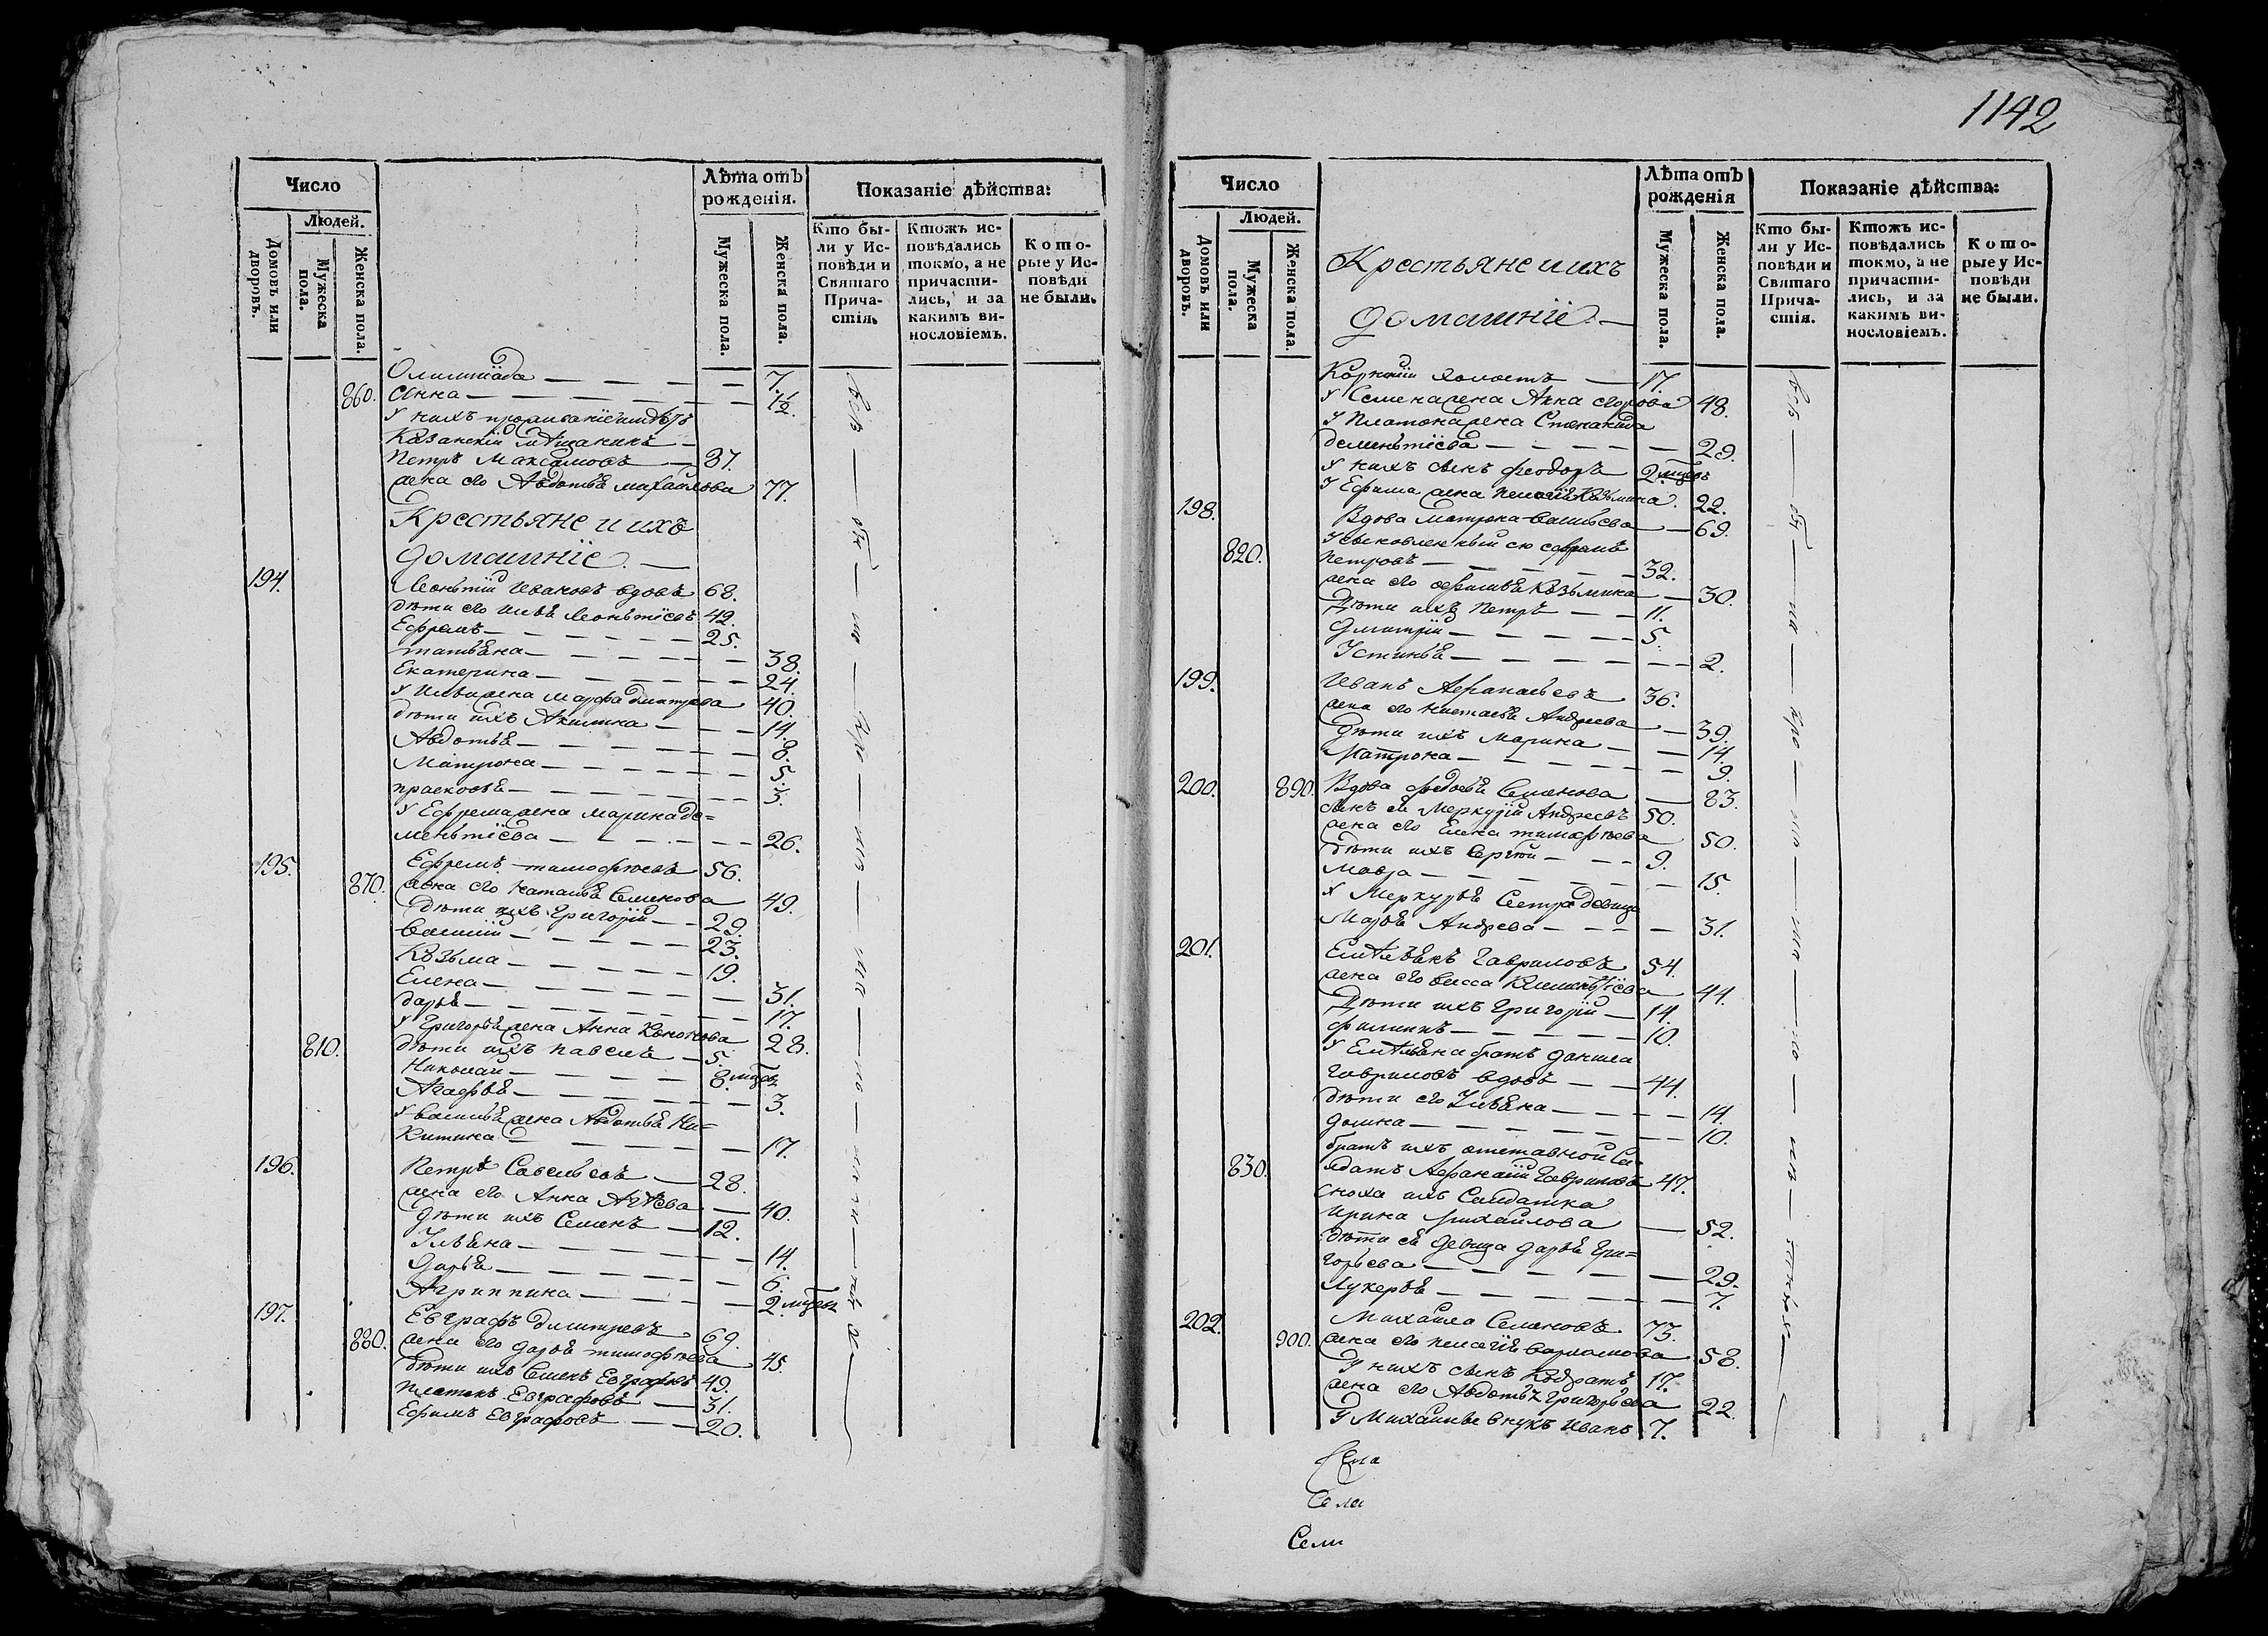 Число
Людей.
Домовъ или дворовъ.
Мужеска пола.
Женска пола.
Лѣта отъ рожденія.
Мужеска пола.
Женска пола.
Показаніе дѣйства:
Кто были у Исповѣди и Святаго Причастія.
Ктожъ исповѣдались токмо, а не причастились, и за какимъ винословіемъ.
Которые у Исповѣди не были.
Олимпіада — 7.
860. Анна — 1½.
У нихъ
Казанскій мѣщанинъ
Петръ Максимовъ — 87.
жена его Авдотья Михайлова 77.
Крестьяне и ихъ
домашніе. —
194. Леонтій Ивановъ вдовъ 68.
дѣти его Илья Леонтіевъ 42.
Ефремъ — 25.
Татьяна — 38.
Екатерина — 24.
У Ильи жена Марфа Дмитрева 40.
дѣти ихъ Акилина — 14.
Авдотья — 8.
Матрона — 5.
Прасковья — 3.
У Ефрема жена Марина де=
ментіева — 26.
195. Ефремъ Тимофѣевъ 56.
870. жена его Наталья Семенова 49.
дѣти ихъ Григорій — 29.
Василій — 23.
Козьма — 19.
Елена — 31.
Дарья — 17.
У Григорья жена Анна Кононова 28.
810. дѣти ихъ Павелъ — 5.
Николай — 8. мцовъ
Агафья — 3.
У Василья жена Авдотья Ни=
китина — 17.
196. Петръ Савельевъ — 28.
жена его Анна Агѣева — 40.
дѣти ихъ Семенъ — 12.
Ульяна — 14.
Дарья — 6.
Агриппина — 2. мцовъ
197. Евграфъ Дмитревъ 69.
880. жена его Дарья Тимофѣева 45.
дѣти ихъ Семенъ Евграфовъ 49.
Платонъ Евграфовъ — 31.
Ефимъ Евграфовъ — 20.
1142
Число
Людей.
Домовъ или дворовъ.
Мужеска пола.
Женска пола.
Крестьяне и ихъ
домашніе. —
Лѣта отъ рожденія
Мужеска пола.
Женска пола.
Показаніе дѣйства:
Кто были у Исповѣди и Святаго Причастія.
Ктожъ исповѣдались токмо, а не причастились, и за какимъ винословіемъ.
Которые у Исповѣди не были.
холостъ — 17.
У Семена жена Анна Егорова 48.
У Платона жена Степанида
дементіева — 29.
У нихъ сынъ Феодоръ 2 мцовъ
У Ефима жена Пелагія Козьмина. 22.
198. Вдова Матрона Васильева — 69.
Усыновленный ею Ефремъ
820. Петровъ — 32.
жена его Афимья Козьмина — 30.
Дѣти ихъ Петръ — 11.
Дмитрій — 5.
Устинья — 2.
199. Иванъ Афанасьевъ 36.
жена его Настасья Андреева — 39.
Дѣти ихъ Марина — 14.
Матрона — 9.
200. 890. Вдова Федосья Семенова — 83.
сынъ ея Меркурій Андреевъ 50.
жена его Елена Тимофѣева 50.
Дѣти ихъ Сергѣй — 9.
Мавра — 15.
У Меркурья Сестра девица
Марья Андрева — 31.
201. Емельянъ Гавриловъ 54.
жена его Васса Климентіева 44.
Дѣти ихъ Григорій — 14.
Филиппъ — 10.
У Емельяна братъ Данила
Гавриловъ вдовъ — 44.
дѣти его Ульяна — 14.
Домна — 10.
братъ ихъ отставной Со=
830. лдатъ Афанасій Гавриловъ 47.
Сноха ихъ Солдатка
Ирина Михайлова — 52.
Дѣти ея Девица Дарья Гри=
горьева — 29.
Лукерья — 7.
202. Михайла Семеновъ. 73.
900. жена его Пелагія Варламова 58.
У нихъ сынъ Кодратъ 17.
жена его Авдотья Григорьева 22.
У Михайлы внукъ Иванъ 7.
Села
Сели
Сели